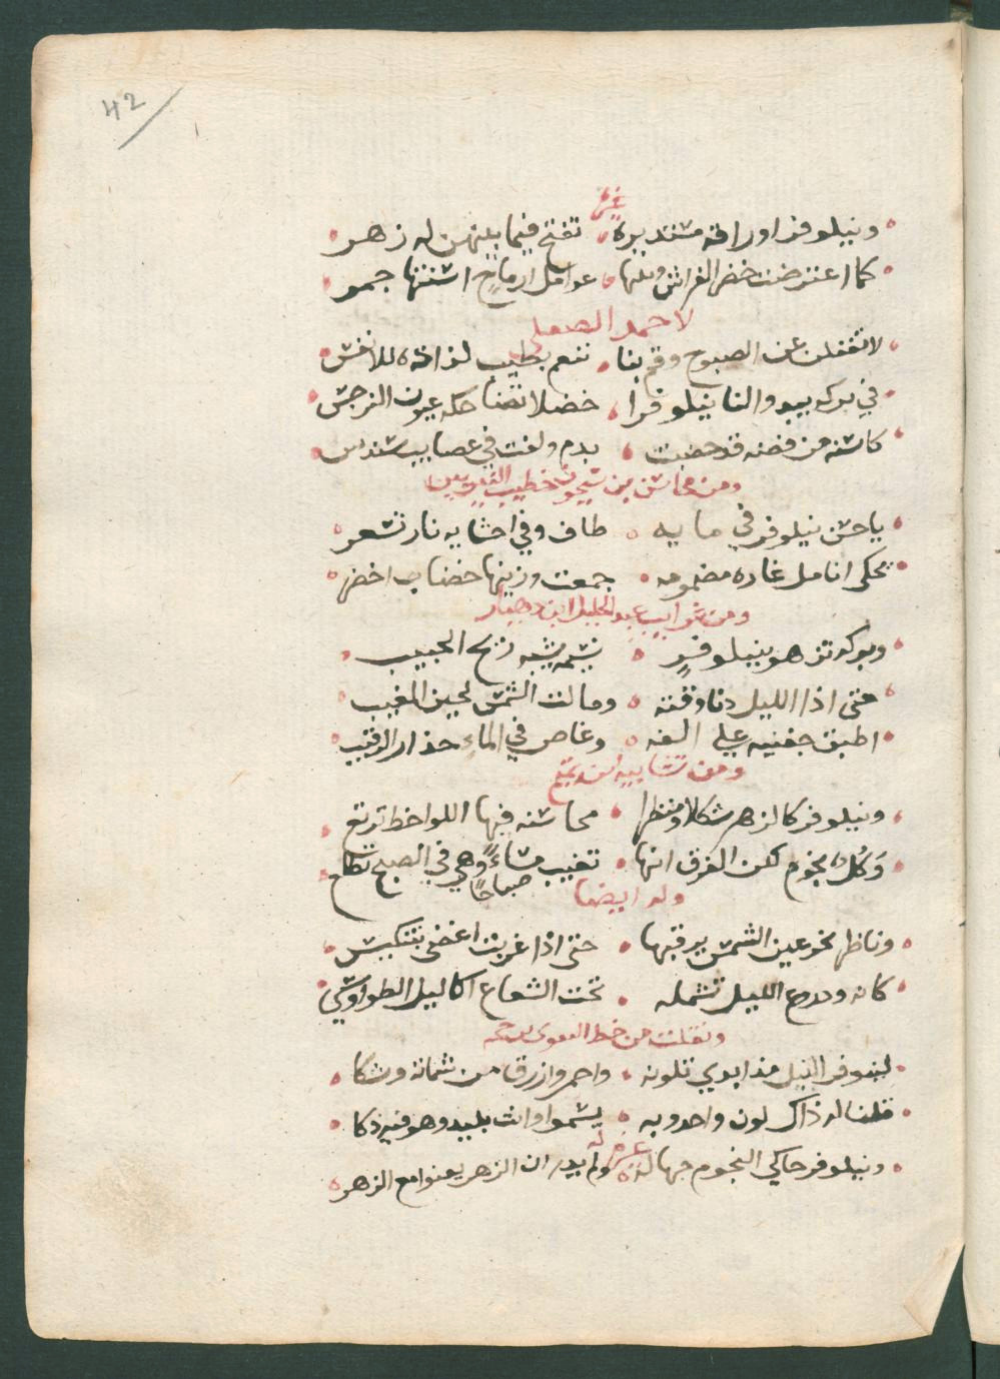 42
غيره
ونيلوفر اوراقه مستديره تفتح فيما بينهن له زهر
كما اعترضت خضر التراس وبينها عوامل ارماح اسنتها جمر
لاحمد الصقلي
لا تغفلن عن الصبوح وقم بنا ننعم بطيب لذاذة للانفس
في بركه يبدو النا نيلوفرا خضلا تضاحكه عيون النرجس
كاسنه من فضه قد خضبت بدم ولفت في عصايب سندس
ومن محاسن بن سيحون خطيب
ياحسن نيلوفر في مايه طاف وفي احشايه نار تسعر
يحكي انامل غاده مضمومه جمعت وزينها خضاب اخضر
ومن غرايب عبد الجليل ابن وهبان
وبركه تزهو بنيلوفرٍ نسيمه يشبه ريح الحبيب
حتى اذا الليل دنا وقته ومالت الشمس لحين المغيب
اطبق جفنيه علي الفه وغاص في الماء حذار الرقيب
ومن تشابيه ابن تميم
ونيلوفر كالزهر شكلا ومنظرا محاسنه فيها اللواحظ ترتع
وكل نجوم لكن الفرق انها تغيب مساءً وهي في الصبح تطلع
صباحًا
وله ايضا
وناظر نحو عين الشمس يرقبها حتى اذا غربت اغضى بتنكيس
كانه ودرع الليل تشمله تحت الشعاع اكاليل الطواويس
ونقلت من خط
لينوفر النيل مذ ابدي تلونه واحمر وازرق من شماته وشكا
قلنا له ذاك لون واحد وبه يسموا وانت بليد وهو فيه ذكا
غيره
ونيلوفر حاكي النجوم جهالة ولم يدر ان الزهر يعنوا مع الزهر